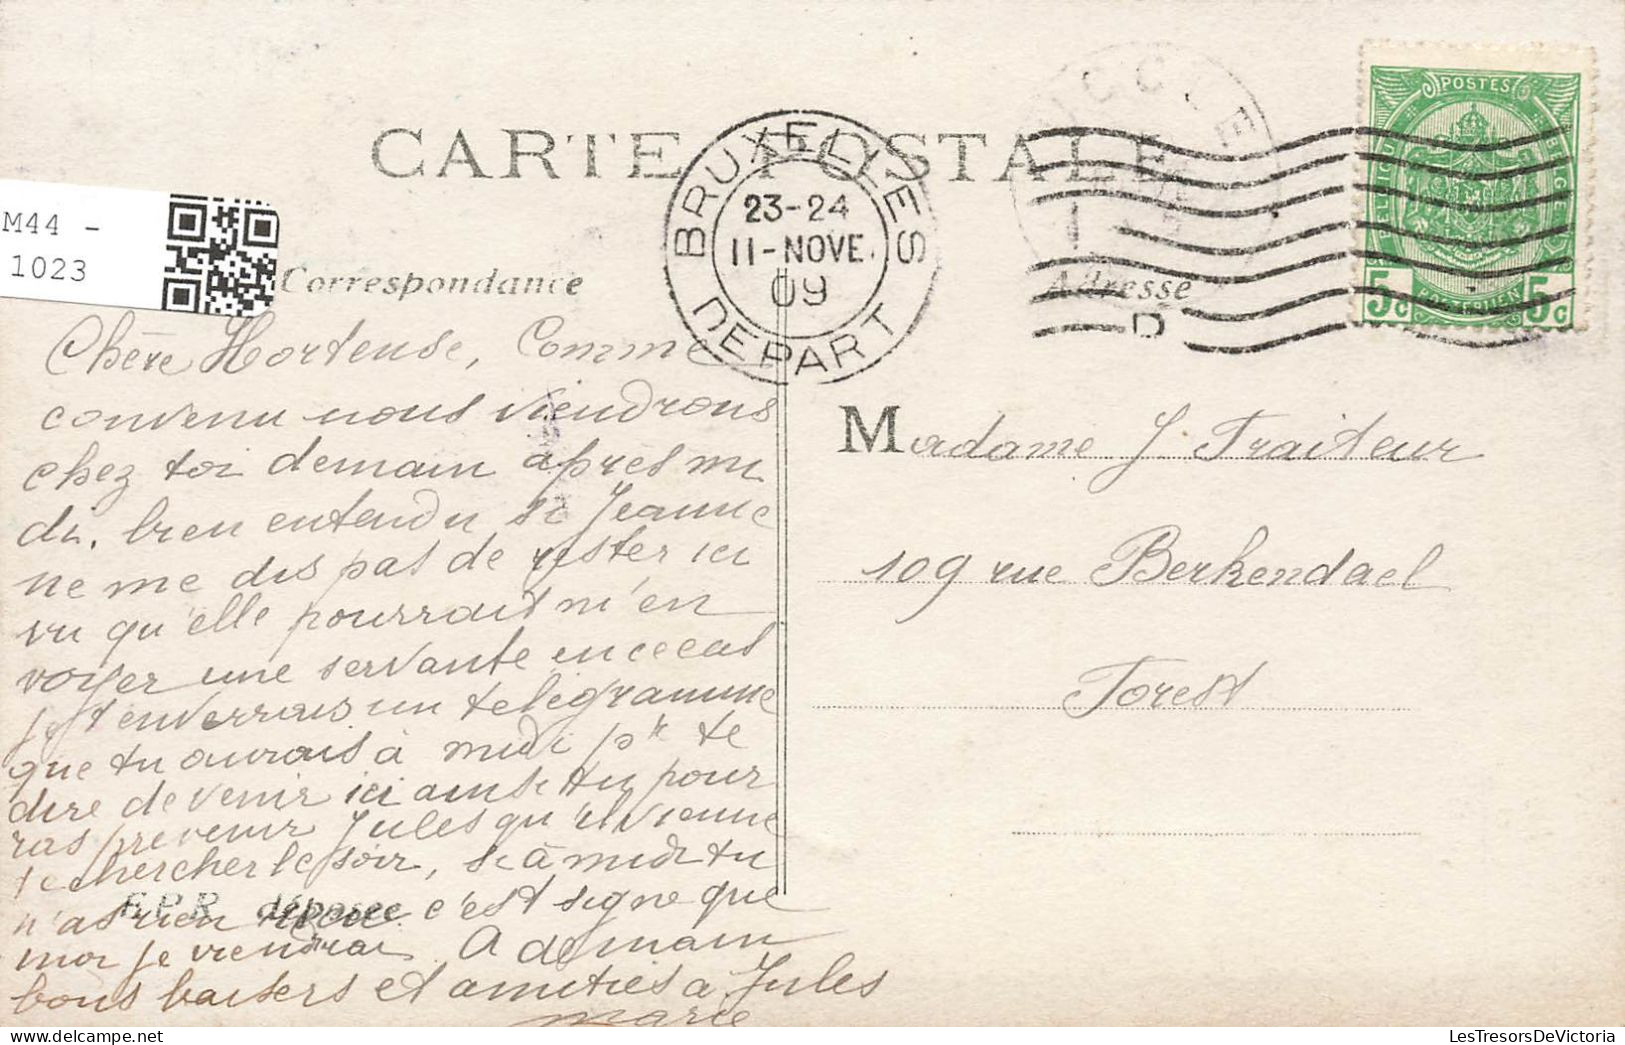 CARTE POSTALE
M44 -
1023
BRUXELLES
23-24
11-NOVE.
09
DEPART
D
UCCLE
POSTES
BELGIQUE
BELGIE
5c POSTERIJEN 5c
Correspondance
Adresse
Chère Hortense, Comme
convenu nous viendrons
chez toi demain après mi
di, bien entendu si Jeanne
ne me dis pas de rester ici
vu qu'elle pourrait m'en
voyer une servante en ce cas
je t'enverrais un telegramme
que tu aurais à midi pr te
dire de venir ici ainsi tu pour
ras prevenir Jules qu'il vienne
te chercher le soir, si à midi tu
n'as rien c'est signe que
moi je viendrai A demain
bons baisers et amitiés a Jules
Marie
E.P.R. déposée
Madame J. Traiteur
109 rue Berkendael
Forest
LesTresorsDeVictoria.com